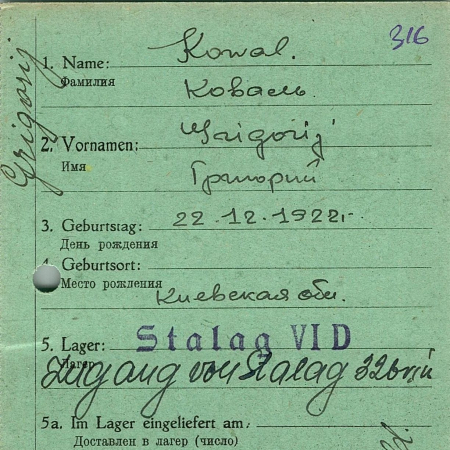 316
Grigorij
1. Name: Kowal.
Фамилия
Коваль.
2. Vornamen: Grigorij
Имя
Григорий
3. Geburtstag: 22.12.1922г.
День рождения
4. Geburtsort:
Место рождения
Киевская обл.
5. Lager: Stalag VI D
Лагерь
Zugang von Stalag 326
5a. Im Lager eingeliefert am:
Доставлен в лагерь (число)